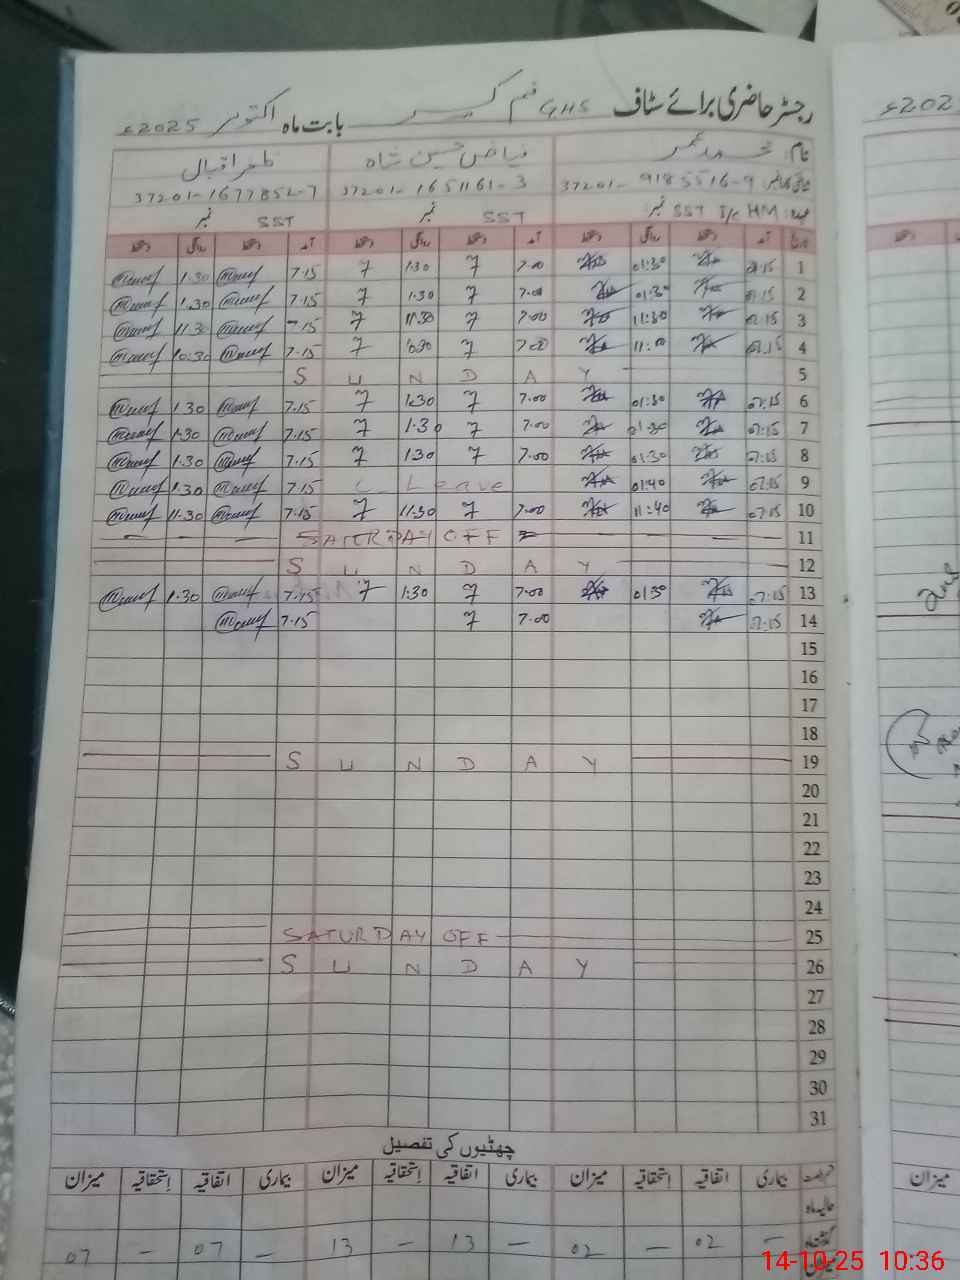 رجسٹر حاضری برائے سٹاف GHS بابت ماہ اکتوبر 2025ء
نام: محمد عمر فیاض حسین شاہ ظفر اقبال
37201-9185516-9 37201-1651161-3 37201-1677852-7
عہدہ: SST I/c HM نمبر SST نمبر SST نمبر
تاریخ آمد دستخط روانگی دستخط آمد دستخط روانگی دستخط آمد دستخط روانگی دستخط
1 07:15 01:30 7.00 7 1:30 7 7.15 1.30
2 07:15 01:30 7.00 7 1.30 7 7.15 1.30
3 07:15 11:30 7.00 7 11.30 7 7.15 11.30
4 07:15 11:00 7.00 7 7 7.15 10.30
5 SUNDAY
6 07:15 01:30 7.00 7 1.30 7 7.15 1.30
7 07:15 01:30 7.00 7 1.30 7 7.15 1.30
8 07:15 01:30 7.00 7 1.30 7 7.15 1.30
9 07:15 01:40 C Leave 7.15 1.30
10 07:15 11:40 7.00 7 11.30 7 7.15 11.30
11 SATURDAY OFF
12 SUNDAY
13 07:15 01:30 7.00 7 1:30 7 7.15 1.30
14 07:15 7.00 7 7.15
15
16
17
18
19 SUNDAY
20
21
22
23
24
25 SATURDAY OFF
26 SUNDAY
27
28
29
30
31
چھٹیوں کی تفصیل
بیماری اتفاقیہ استحقاقیہ میزان بیماری اتفاقیہ استحقاقیہ میزان بیماری اتفاقیہ استحقاقیہ میزان
حالیہ ماہ
— 02 — 02 — 13 — 13 — 07 — 07
میزان
14-10-25 10:36